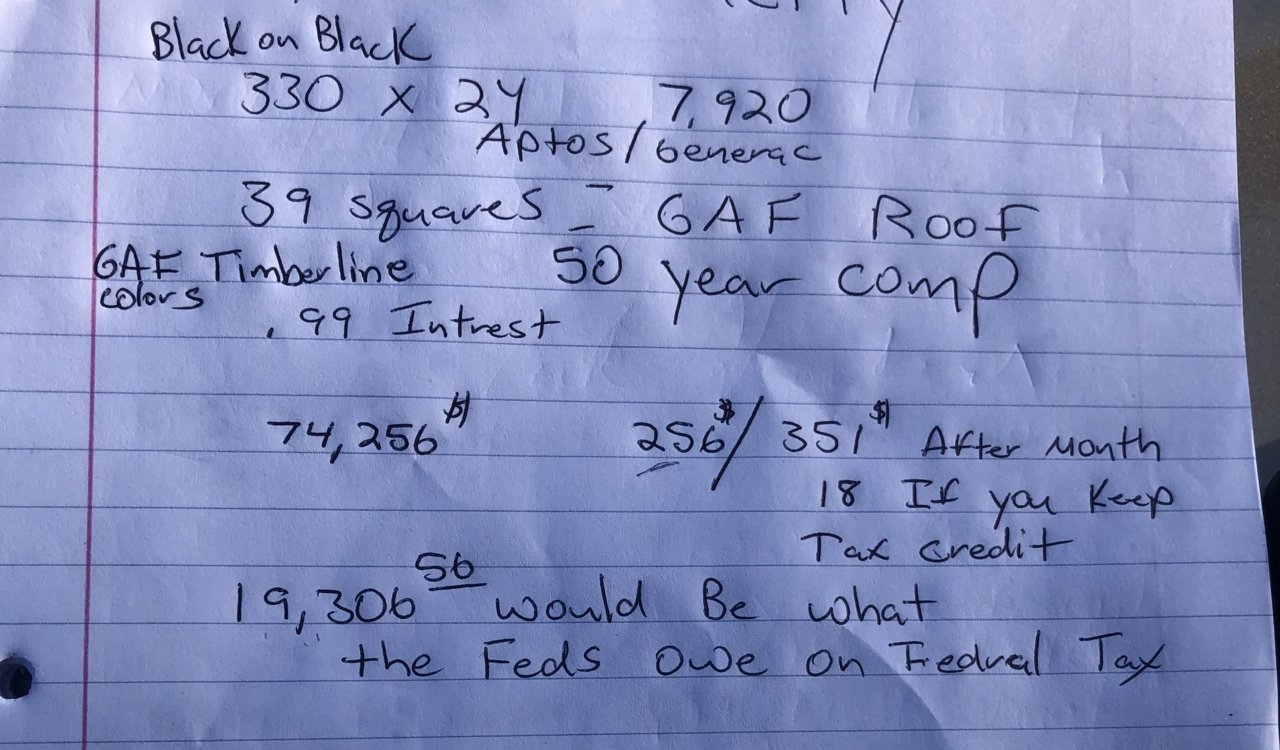 Black on Black
330 x 24 7,920
Aptos/Generac
39 squares - GAF Roof
GAF Timberline 50 year comp
colors
.99 Intrest
74,256$ 256$/351$ After Month
18 If you Keep
Tax credit
19,306 56 would Be what
the Feds owe on Fedral Tax